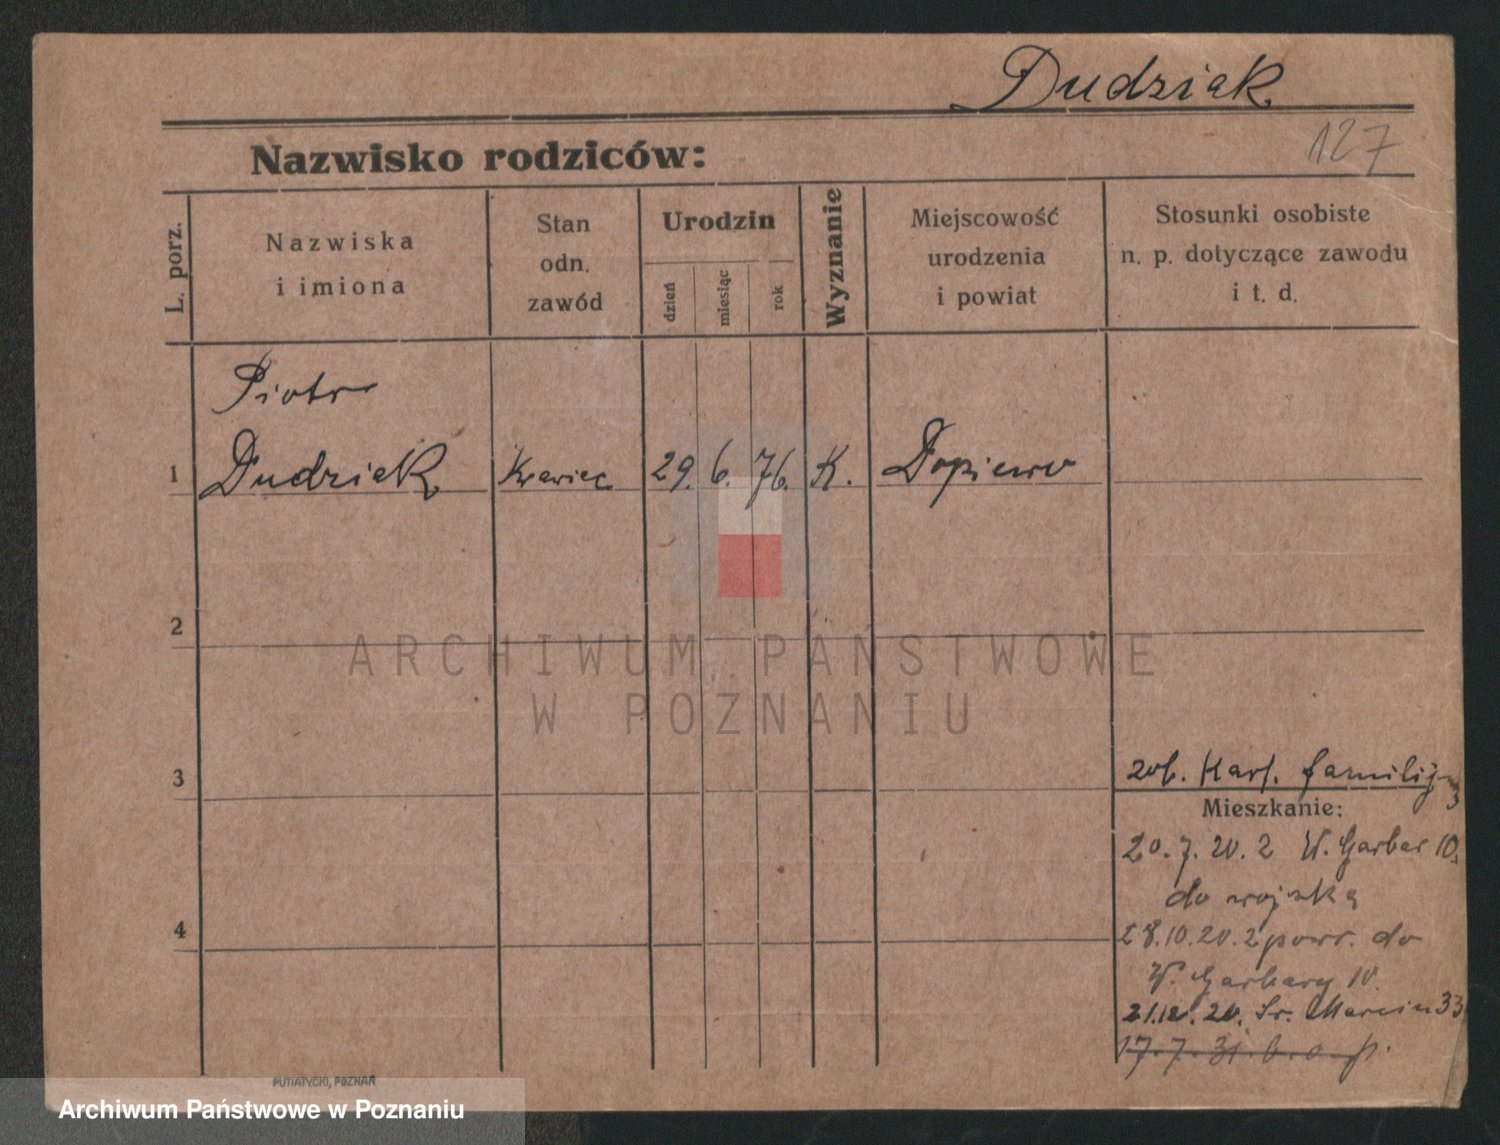 Dudziak
127
Nazwisko rodziców:
L. porz.
Nazwiska
i imiona
Stan
odn.
zawód
Urodzin
dzień
miesiąc
rok
Wyznanie
Miejscowość
urodzenia
i powiat
Stosunki osobiste
n. p. dotyczące zawodu
i t. d.
Piotr
1 Dudziak Krawiec 29. 6. 76. K. Dopiewo
2
3
4
zob. Kart. familijn
Mieszkanie:
20. 7. 20. z W. Garbar 10.
do wojska
28. 10. 20. z powr. do
W. Garbary 10.
21.12. 20. Św. Marcin 33
17. 7. 31.
PUTIATYCKI, POZNAŃ
ARCHIWUM PAŃSTWOWE
W POZNANIU
Archiwum Państwowe w Poznaniu